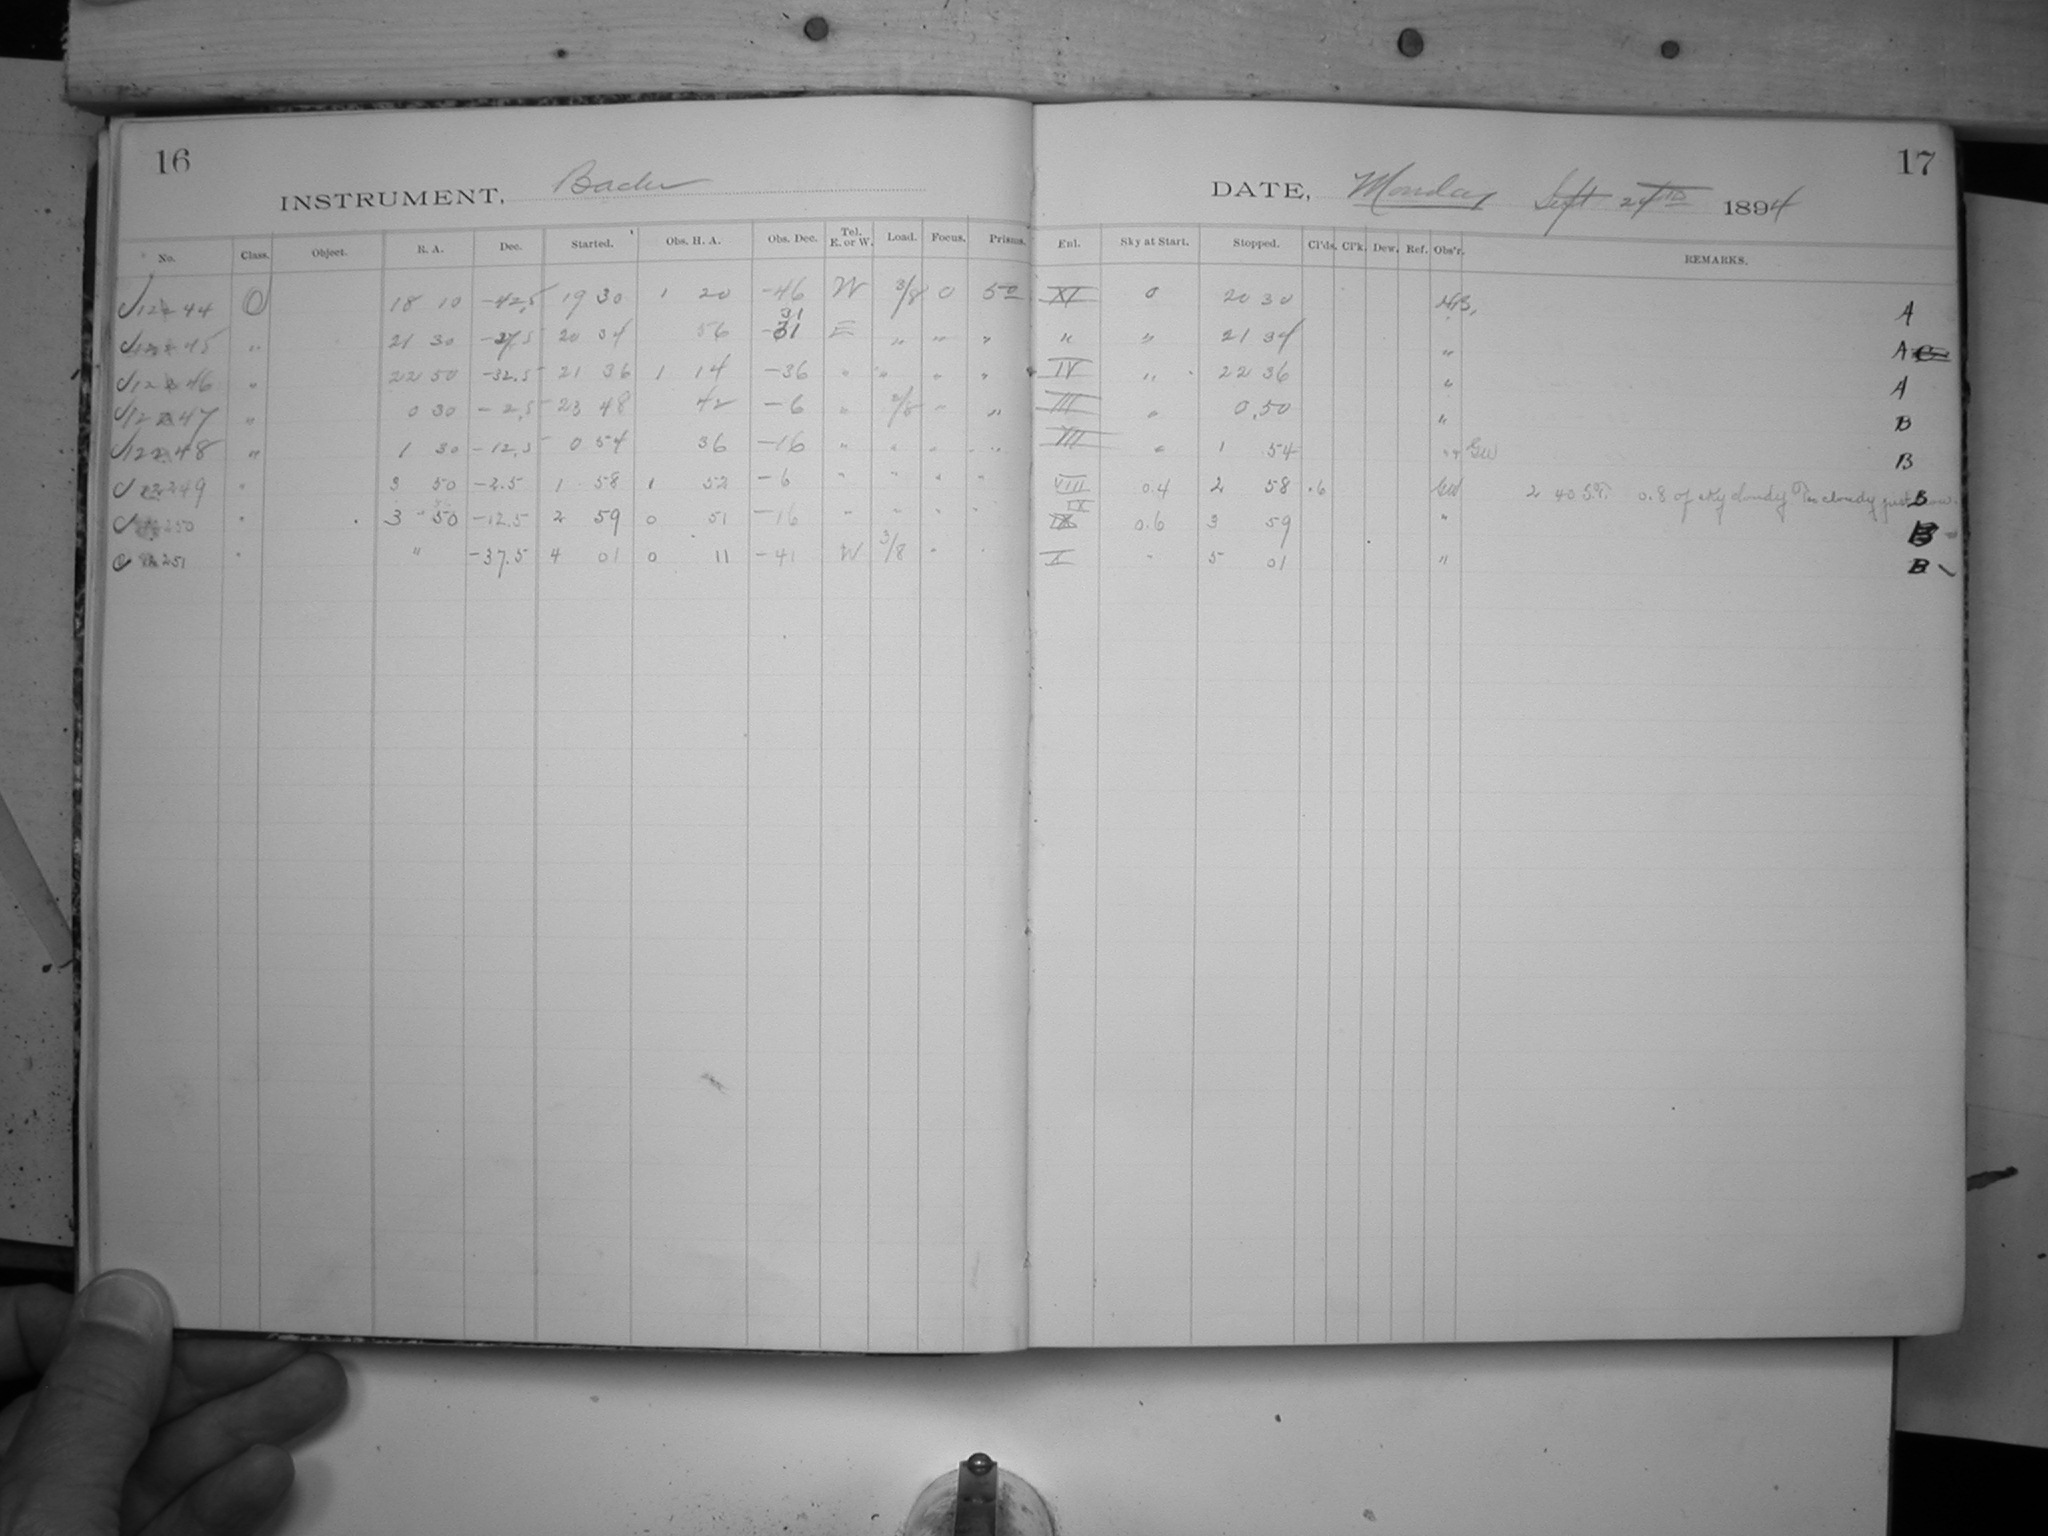 16
INSTRUMENT, Bache
No. Class. Object. R. A. Dec. Started. Obs. H. A. Obs. Dec. Tel. E. or W. Load. Focus. Prisms.
12244 O 18 10 -42.5 19 30 1 20 -46 W 3/8 0 50
31
12245 " 21 30 -27.5 20 34 56 -31 E " " "
12246 " 22 50 -32.5 21 36 1 14 -36 " " " "
12247 " 0 30 -2.5 23 48 42 -6 " 2/8 " "
12248 " 1 30 -12.5 0 54 36 -16 " " " "
12249 " 3 50 -2.5 1 58 1 52 -6 " " " "
12250 " 3 50 -12.5 2 59 0 51 -16 " " " "
12251 " " -37.5 4 01 0 11 -41 W 3/8 " "
17
DATE, Monday Sept 24th 1894
Enl. Sky at Start. Stopped. Cl'ds. Cl'k. Dew. Ref. Obs'r. REMARKS.
XI 0 20 30 A
" " 21 34 " A
IV " 22 36 " A
III " 0.50 " B
VII " 1 54 " GW B
VIII 0.4 2 58 .6 GW 2 40 S.T. 0.8 of sky cloudy B
IX 0.6 3 59 " B
X " 5 01 " B